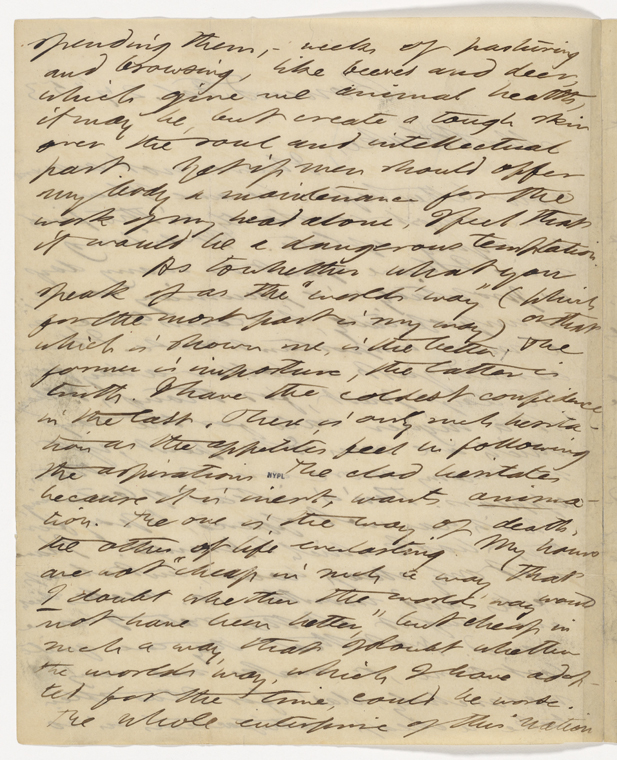 spending them,- weeks of pasturing
and browsing, like beeves and deer,
which give me animal health,
it may be, but create a tough skin
over the soul and intellectual
part. Yet if men should offer
my body a maintenance for the
work of my head alone, I feel that
it would be a dangerous temptation.
As to whether what you
speak of as the "world's way" (which
for the most part is my way) or that
which is shown me, is the better. The
former is imposture, the latter is
truth. I have the coldest confidence
in the last. There is only such hesita-
tion as the appetites feel in following
the aspirations. The clod hesitates
NYPL
because it is inert, wants anima-
tion. The one is the way of death,
the other of life everlasting. My hours
are not "cheap in such a way that
I doubt whether the world's way would
not have been better," but cheap in
such a way, that I doubt whether
the world's way, which I have adop-
ted for the time, could be worse.
The whole enterprise of this nation